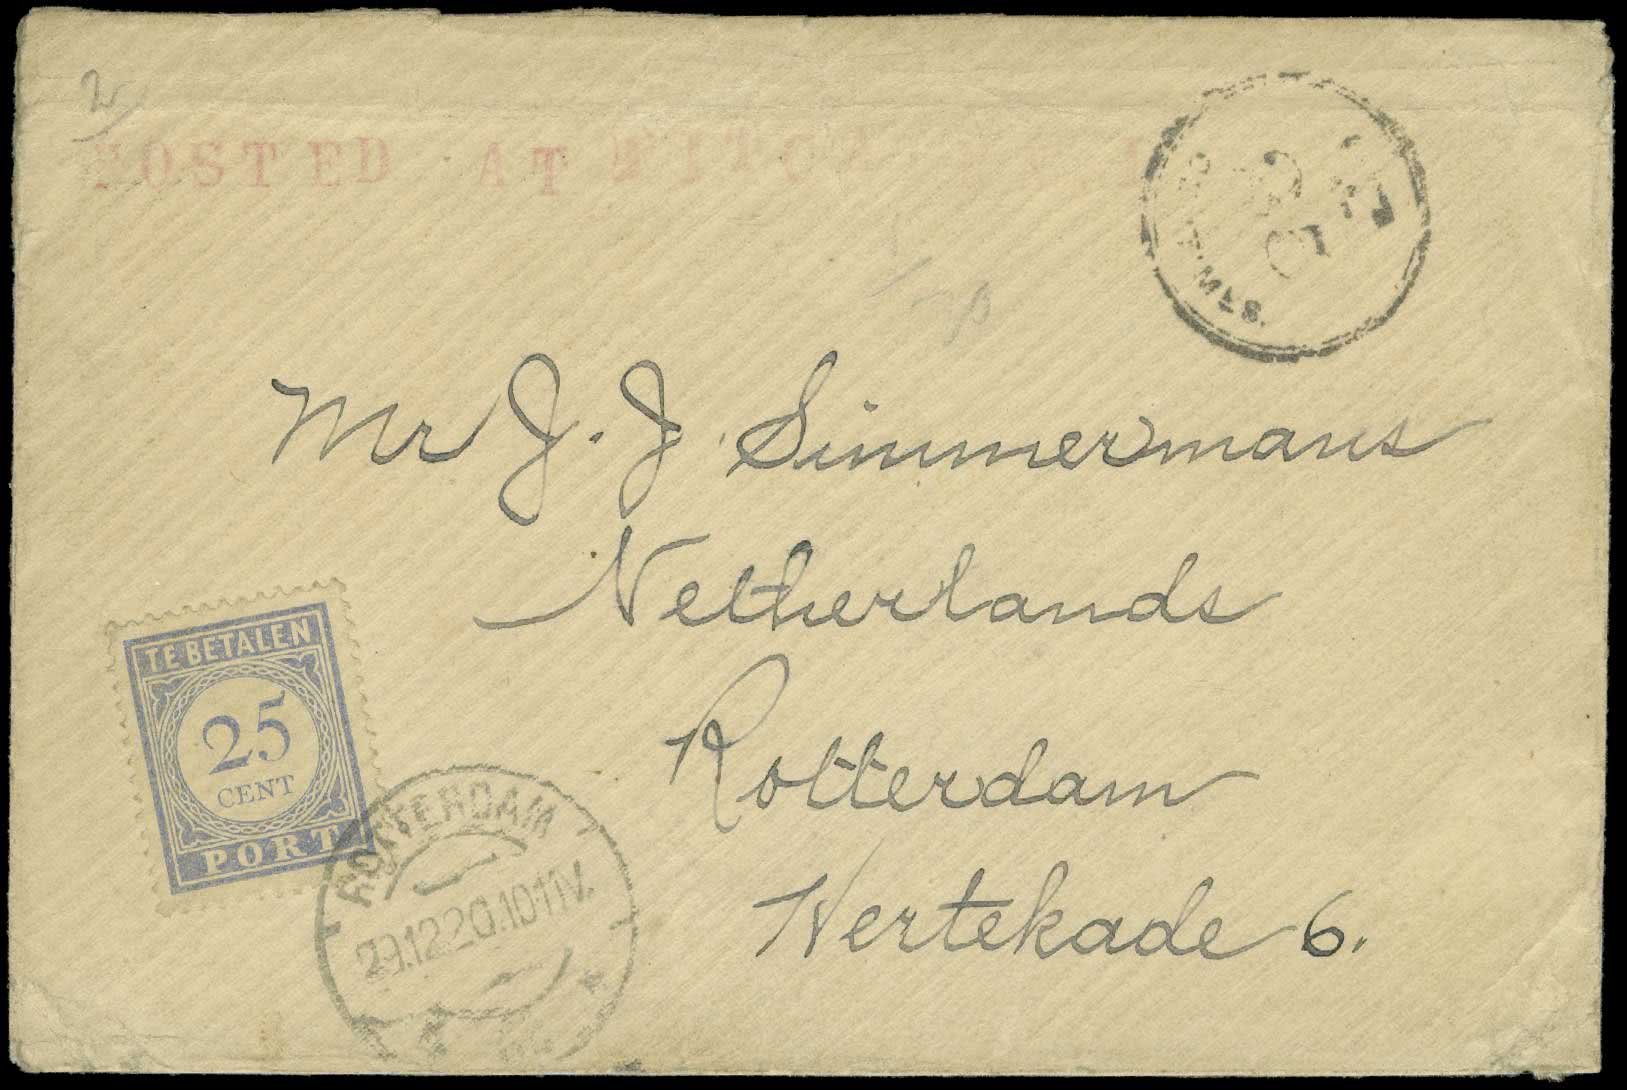 2
POSTED AT PITCAIRN I
Mr J. J. Simmermans
Netherlands
Rotterdam
Vertekade 6.
TE BETALEN
25
CENT
PORT
ROTTERDAM
29.12.20.10-11V.